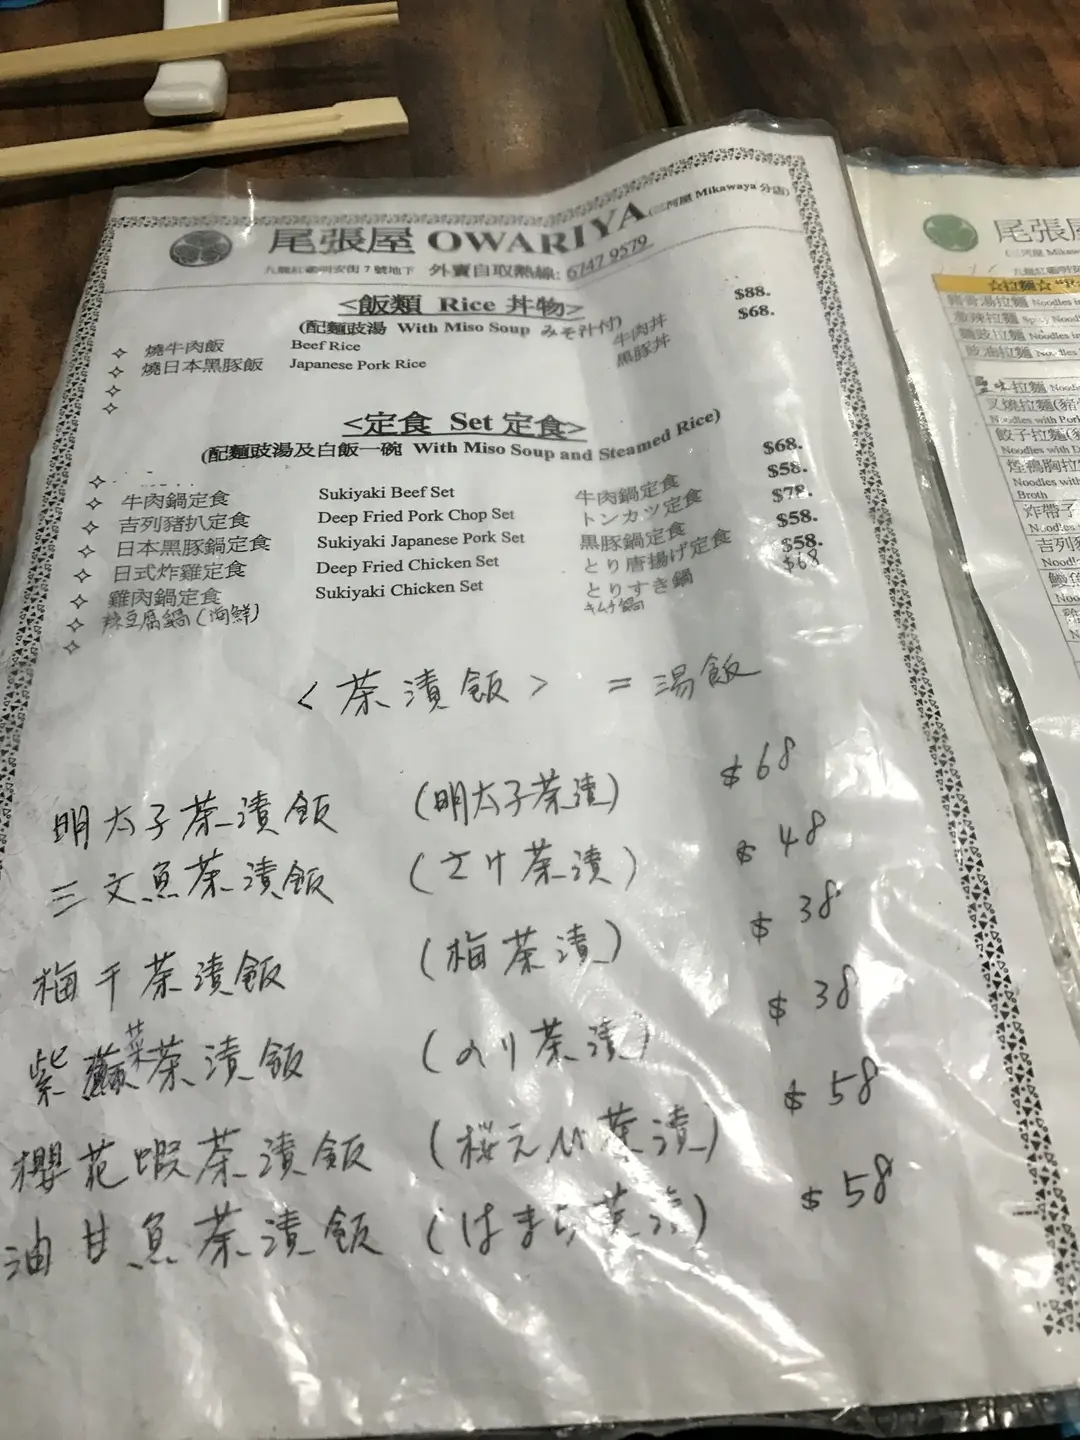 尾張屋 OWARIYA (三河屋 Mikawaya 分店)
九龍紅磡明安街7號地下 外賣自取熱線: 6747 9579
<飯類 Rice 丼物>
(配麵豉湯 With Miso Soup みそ汁付)
燒牛肉飯 Beef Rice 牛肉丼 $88.
燒日本黑豚飯 Japanese Pork Rice 黒豚丼 $68.
<定食 Set 定食>
(配麵豉湯及白飯一碗 With Miso Soup and Steamed Rice)
牛肉鍋定食 Sukiyaki Beef Set 牛肉鍋定食 $68.
吉列豬扒定食 Deep Fried Pork Chop Set トンカツ定食 $58.
日本黑豚鍋定食 Sukiyaki Japanese Pork Set 黒豚鍋定食 $78.
日式炸雞定食 Deep Fried Chicken Set とり唐揚げ定食 $58.
雞肉鍋定食 Sukiyaki Chicken Set とりすき鍋 $58.
辣豆腐鍋(海鮮) キムチ鍋 $68
<茶漬飯> = 湯飯
明太子茶漬飯 (明太子茶漬) $68
三文魚茶漬飯 (さけ茶漬) $48
梅干茶漬飯 (梅茶漬) $38
紫菜茶漬飯 (のり茶漬) $38
櫻花蝦茶漬飯 (桜えび茶漬) $58
油甘魚茶漬飯 (はまち茶漬) $58
尾張屋
☆拉麵☆
豬骨湯拉麵
激辣拉麵
麵豉拉麵
豉油拉麵
鹽味拉麵
叉燒拉麵
Noodles with
餃子拉麵
Noodles with
Noodles with
Broth
炸帶子
吉列豬